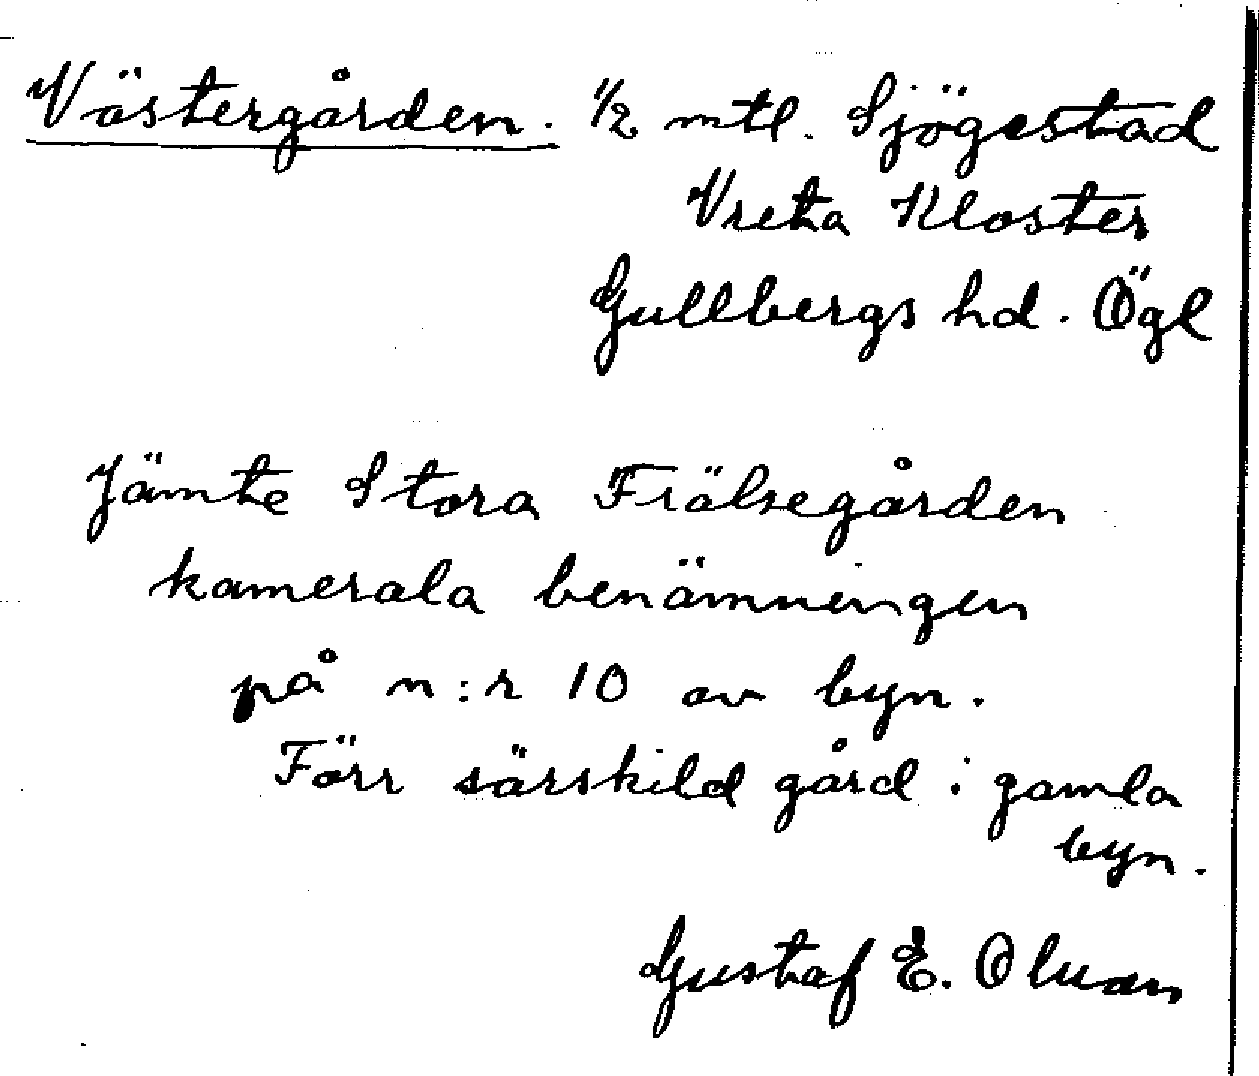 Västergården. 1/2 mtl. Sjögestad
Vreta Kloster
Gullbergs hd. Ögl
Jämte Stora Frälsegården
kamerala benämningen
på n:r 10 av byn.
Förr särskild gård i gamla
byn.
Gustaf E. Olsson